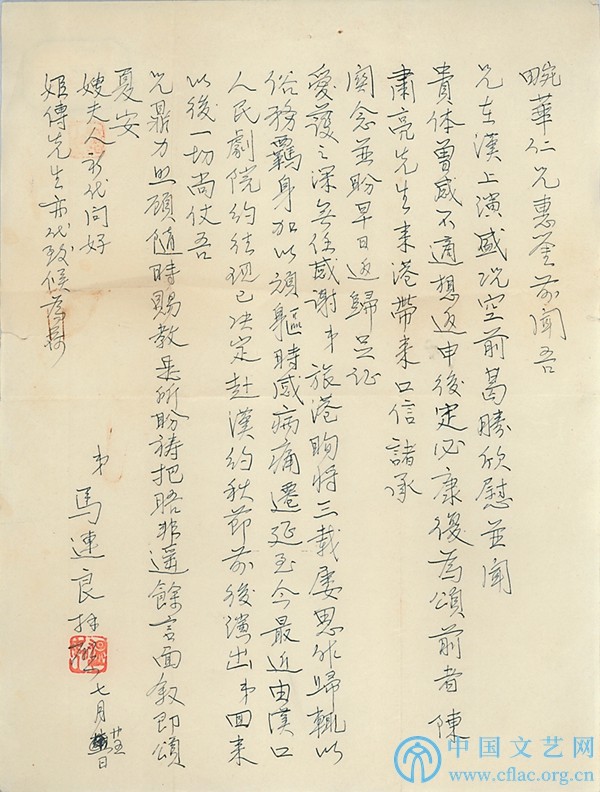 畹華仁兄惠鉴前聞吾
兄在漢上演盛況空前曷勝欣慰並聞
貴体曾感不適想返申後定必康復為頌前者陳
肅亮先生来港帶来口信諸承
関念並盼早日返歸足证
愛護之深無任感谢弟旅港眴将三載屡思北歸輒以
俗務羁身加以頑軀時感病痛遷延至今最近由漢口
人民劇院约往现已决定赴漢约秋節前後演出弟回来
以後一切尚仗吾
兄鼎力照顾隨時賜教是所盼祷把晤非遥餘言面叙即頌
夏安
嫂夫人前代问好
姬傳先生亦代致候為荷
弟 馬連良拜 七月廿日
中国文艺网
www.cflac.org.cn